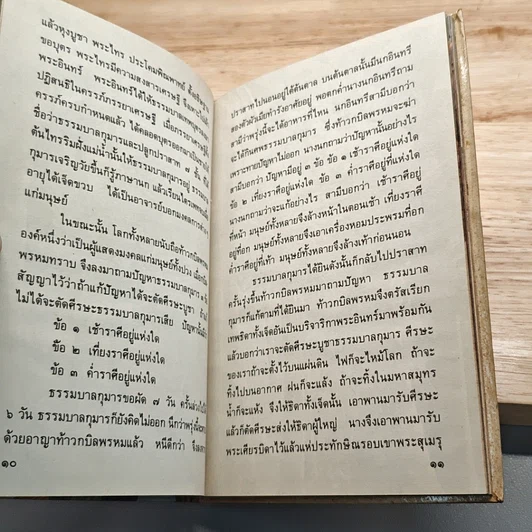 แล้วหุงบูชา พระไทร ประโคมพิณพาทย์ ตั้ง
ขอบุตร พระไทรมีความสงสารเศรษฐี จึง
พระอินทร์ พระอินทร์ได้ให้ธรรมบาลเทพบุตร
ปฏิสนธิในครรภ์ภรรยาเศรษฐี เมื่อภรรยา
ครรภ์ครบกำหนดแล้ว ได้คลอดบุตรออกมาเป็น
ชื่อว่าธรรมบาลกุมารและปลูกปราสาท ๗ ชั้น
ต้นไทรริมฝั่งแม่น้ำนั้นให้ธรรมบาลกุมารอยู่
กุมารเจริญวัยขึ้นก็รู้ภาษานก แล้วเรียนไตรเพท
อายุได้เจ็ดขวบ ได้เป็นอาจารย์บอกมงคลการต่าง
แก่มนุษย์
ในขณะนั้น โลกทั้งหลายนับถือท้าว
องค์หนึ่งว่าเป็นผู้แสดงมงคลแก่มนุษย์ทั้งปวง
พรหมทราบ จึงลงมาถามปัญหาธรรมบาลกุมาร ๓
สัญญาไว้ว่าถ้าแก้ปัญหาได้จะตัดศีรษะบูชา ถ้า
ไม่ได้จะตัดศีรษะธรรมบาลกุมารเสีย ปัญหานั้น
ข้อ ๑ เช้าราศีอยู่แห่งใด
ข้อ ๒ เที่ยงราศีอยู่แห่งใด
ข้อ ๓ ค่ำราศีอยู่แห่งใด
ธรรมบาลกุมารขอผัด ๗ วัน ครั้นล่วงไป
๖ วัน ธรรมบาลกุมารก็ยังคิดไม่ออก นึกว่าพรุ่งนี้
ด้วยอาญาท้าวกบิลพรหมแล้ว หนีดีกว่า จึงลง
๑๐
ปราสาทไปนอนอยู่ใต้ต้นตาล บนต้นตาลนั้นมีนกอินทรี
สองตัวผัวเมียทำรังอาศัยอยู่ พอตกค่ำนางนกอินทรีถาม
สามีว่าพรุ่งนี้จะได้อาหารที่ไหน นกอินทรีสามีบอกว่า
จะได้กินศพธรรมบาลกุมาร ซึ่งท้าวกบิลพรหมจะฆ่า
เพราะทายปัญหาไม่ออก นางนกถามว่าปัญหานั้นอย่างไร
สามีบอกว่า ปัญหามีอยู่ ๓ ข้อ ข้อ ๑ เช้าราศีอยู่แห่งใด
ข้อ ๒ เที่ยงราศีอยู่แห่งใด ข้อ ๓ ค่ำราศีอยู่ที่แห่งใด
นางนกถามว่าจะแก้อย่างไร สามีบอกว่า เช้าราศีอยู่
ที่หน้า มนุษย์ทั้งหลายจึงล้างหน้าในตอนเช้า เที่ยงราศี
อยู่ที่อก มนุษย์ทั้งหลายจึงเอาเครื่องหอมประพรมที่อก
ค่ำราศีอยู่ที่เท้า มนุษย์ทั้งหลายจึงล้างเท้าก่อนนอน
ธรรมบาลกุมารได้ยินดังนั้นก็กลับไปปราสาท
ครั้นรุ่งขึ้นท้าวกบิลพรหมมาถามปัญหา ธรรมบาล
กุมารก็แก้ตามที่ได้ยินมา ท้าวกบิลพรหมจึงตรัสเรียก
เทพธิดาทั้งเจ็ดอันเป็นบริจาริกาพระอินทร์มาพร้อมกัน
แล้วบอกว่าเราจะตัดศีรษะบูชาธรรมบาลกุมาร ศีรษะ
ของเราถ้าจะตั้งไว้บนแผ่นดิน ไฟก็จะไหม้โลก ถ้าจะ
ทิ้งไปบนอากาศ ฝนก็จะแล้ง ถ้าจะทิ้งในมหาสมุทร
น้ำก็จะแห้ง จึงให้ธิดาทั้งเจ็ดนั้น เอาพานมารับศีรษะ
แล้วก็ตัดศีรษะส่งให้ธิดาผู้ใหญ่ นางจึงเอาพานมารับ
พระเศียรบิดาไว้แล้วแห่ประทักษิณรอบเขาพระสุเมรุ
๑๑